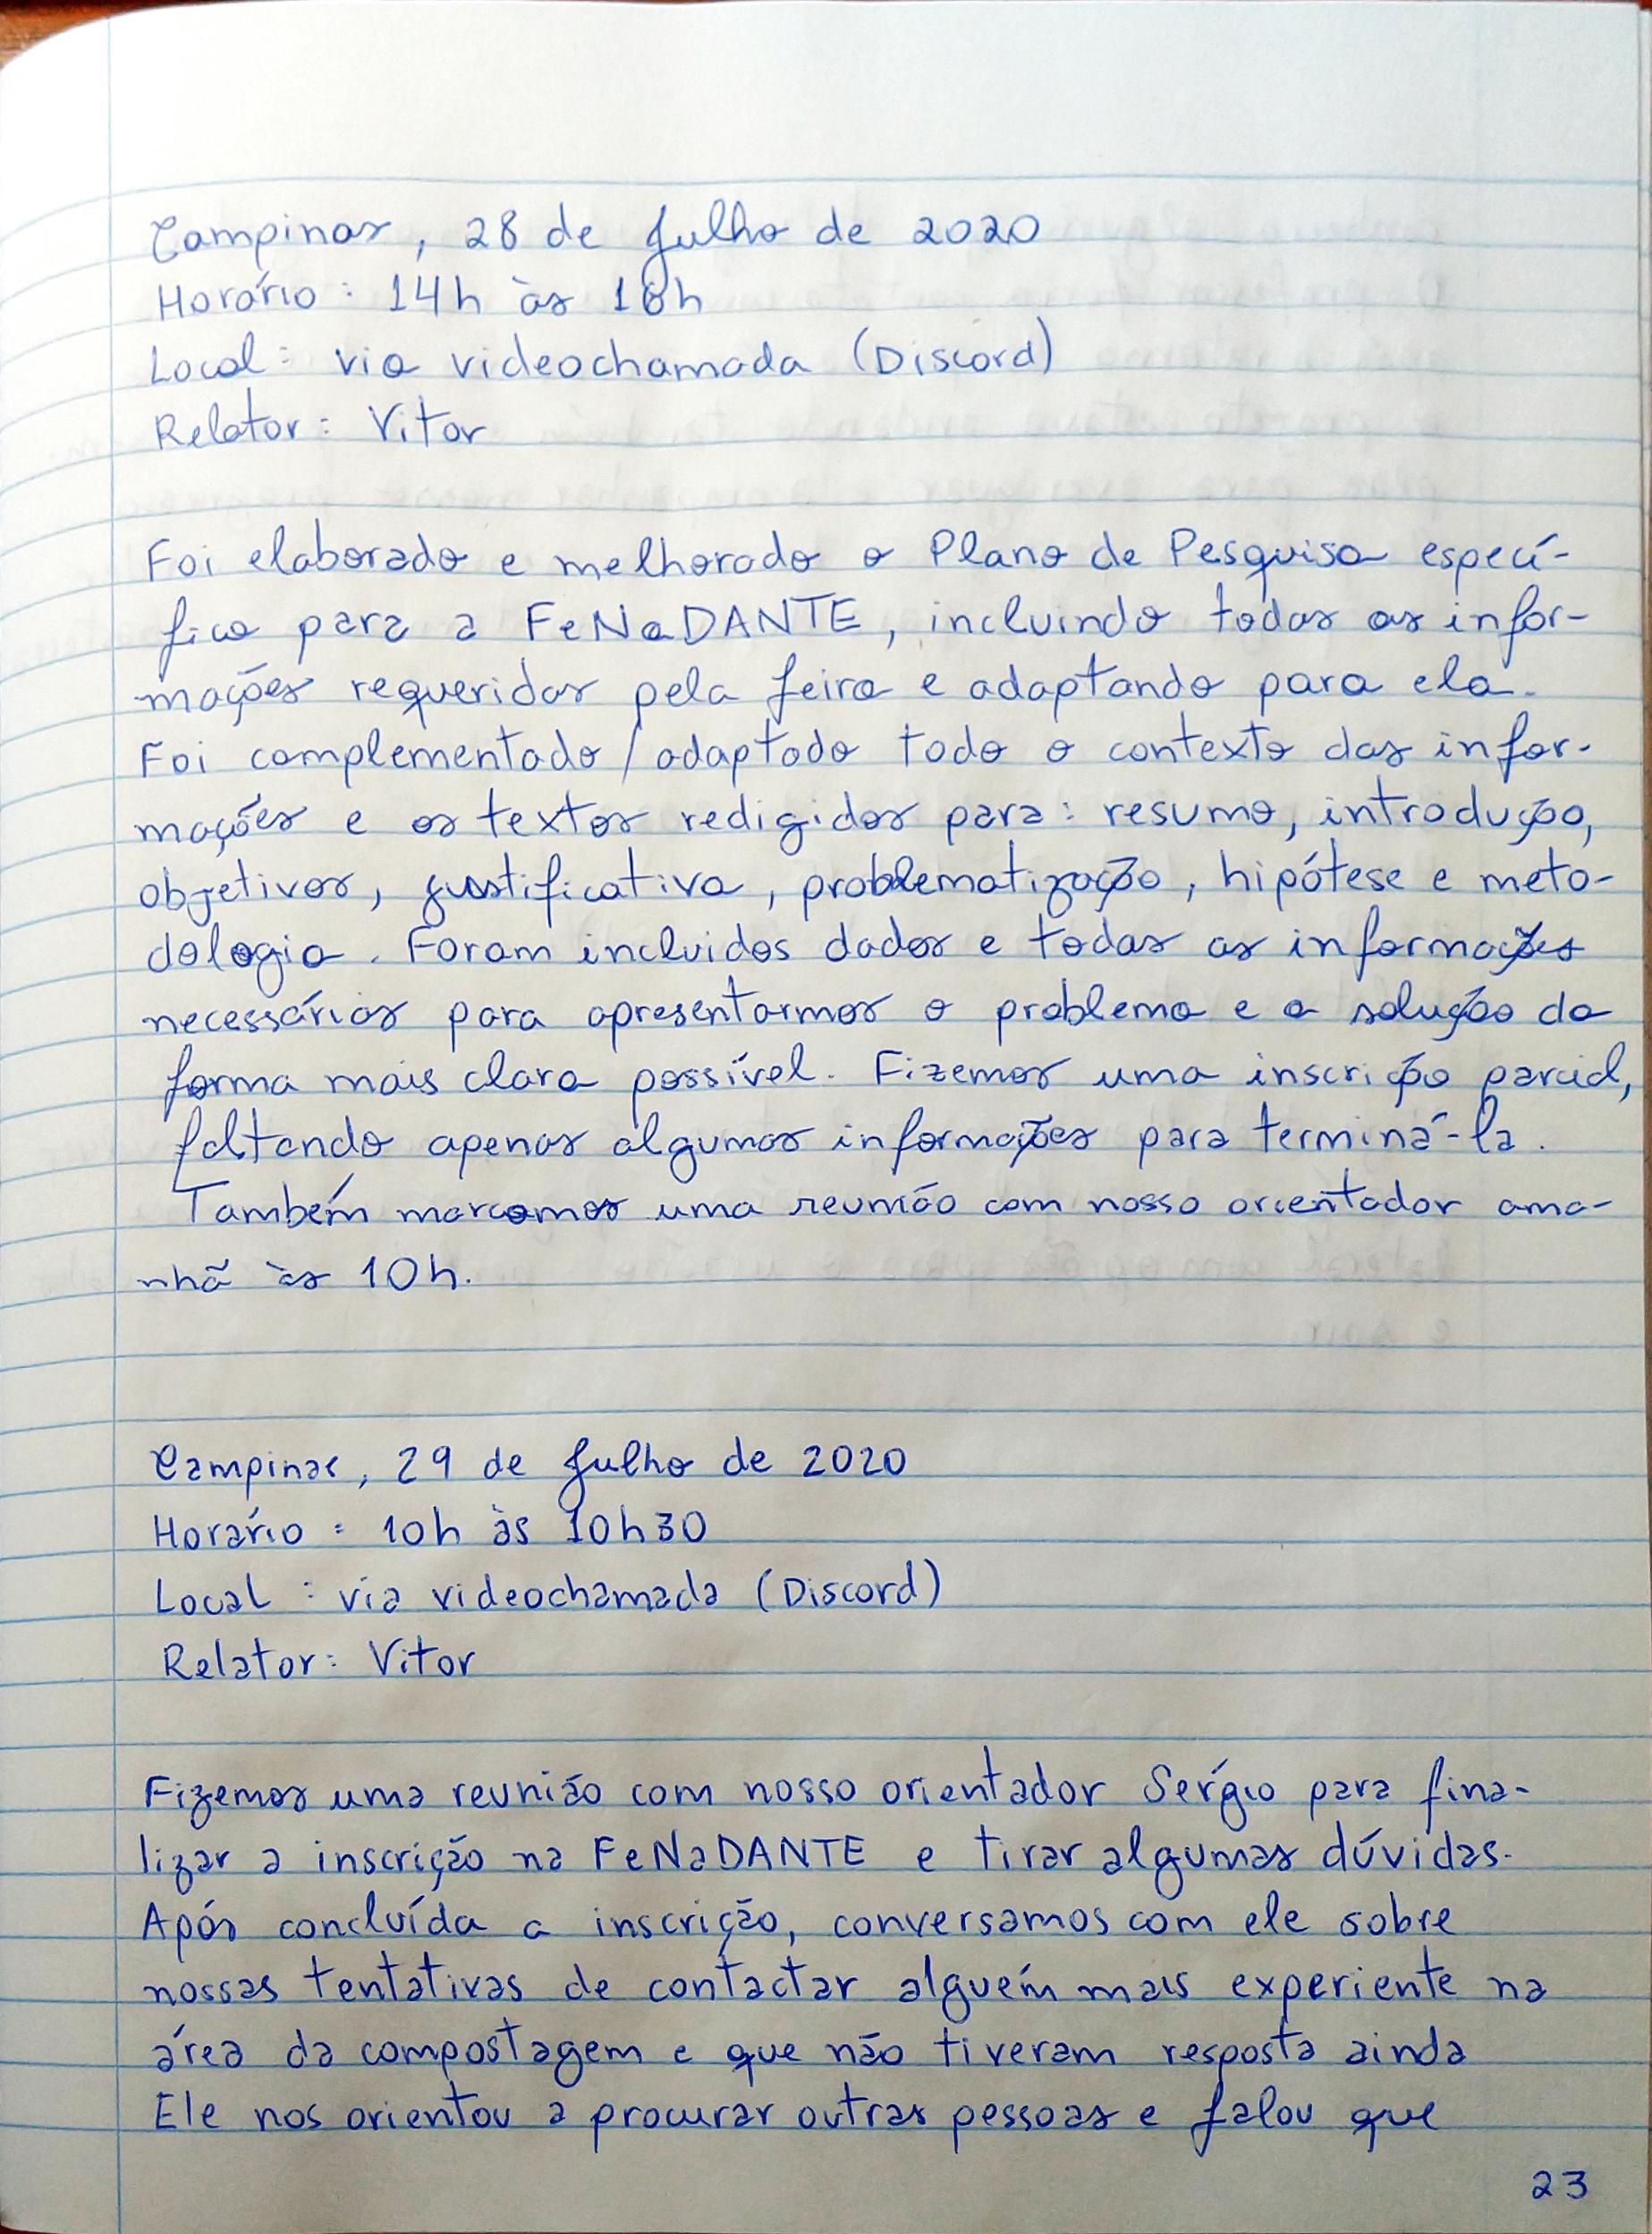 Campinas, 28 de Julho de 2020
Horário: 14h às 18h
Local: via videochamada (Discord)
Relator: Vitor
Foi elaborado e melhorado o Plano de Pesquisa especí-
fico para a FeNaDANTE, incluindo todas as infor-
mações requeridas pela feira e adaptando para ela.
Foi complementado/adaptado todo o contexto das infor-
mações e os textos redigidos para: resumo, introdução,
objetivos, justificativa, problematização, hipótese e meto-
dologia. Foram incluidos dados e todas as informações
necessárias para apresentarmos o problema e a solução da
forma mais clara possível. Fizemos uma inscrição parcial,
faltando apenas algumas informações para terminá-la.
Também marcamos uma reunião com nosso orientador ama-
nhã às 10h.
Campinas, 29 de Julho de 2020
Horário: 10h às 10h30
Local: via videochamada (Discord)
Relator: Vitor
Fizemos uma reunião com nosso orientador Sérgio para fina-
lizar a inscrição na FeNaDANTE e tirar algumas dúvidas.
Após concluída a inscrição, conversamos com ele sobre
nossas tentativas de contactar alguém mais experiente na
área da compostagem e que não tiveram resposta ainda
Ele nos orientou a procurar outras pessoas e falou que
23